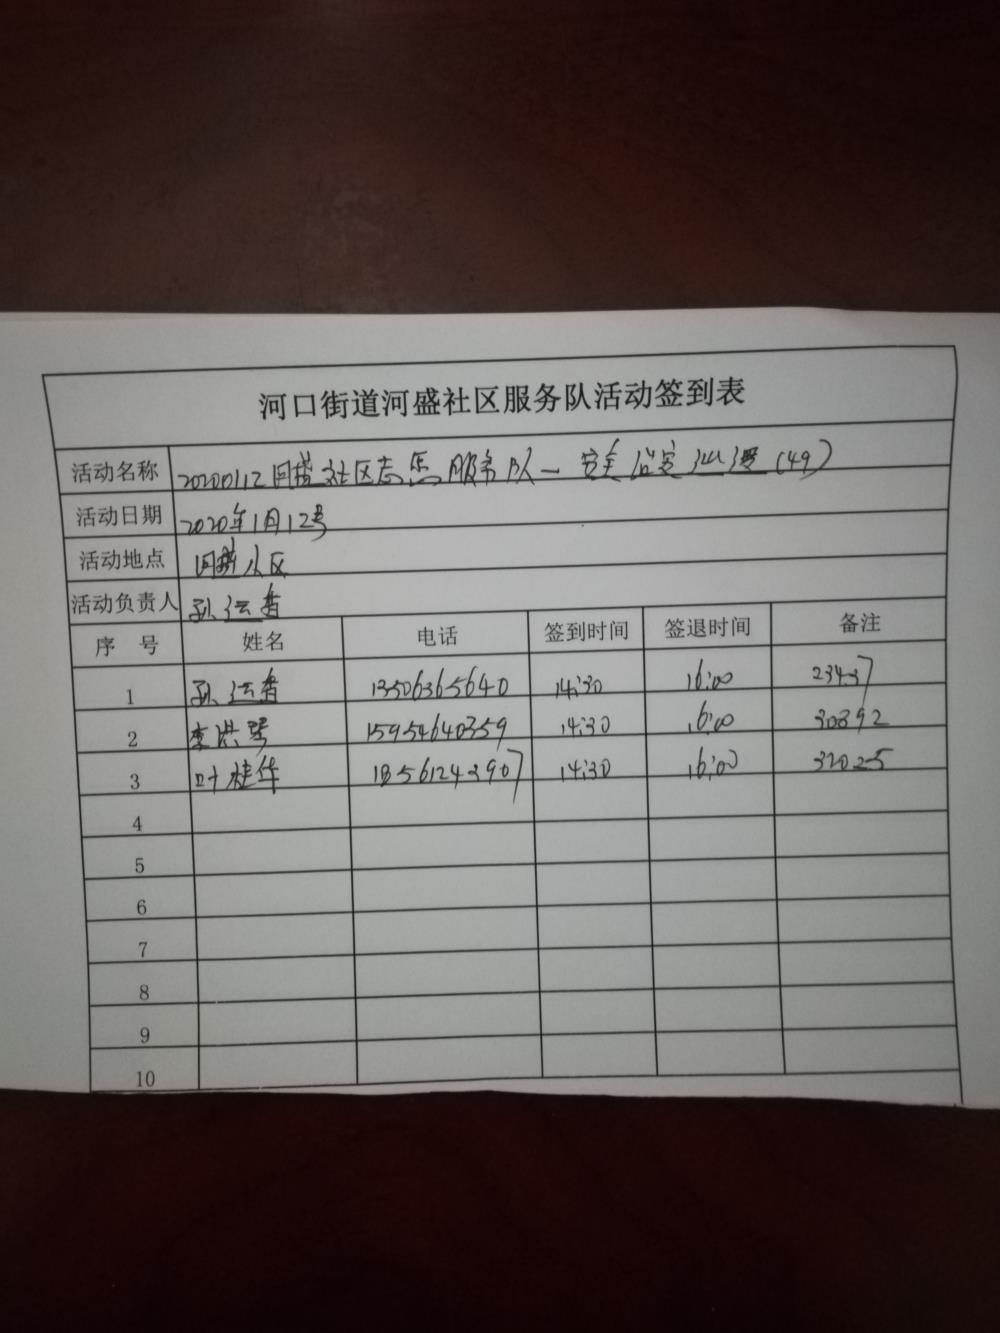 河口街道河盛社区服务队活动签到表
活动名称 20200112河盛社区志愿服务队—安全治安巡逻(49)
活动日期 2020年1月12号
活动地点 河盛小区
活动负责人 孙运香
序 号 姓名 电话 签到时间 签退时间 备注
1 孙运香 13506365640 14:30 16:00 23437
2 李洪琴 15954640359 14:30 16:00 30892
3 叶桂华 18561243907 14:30 16:00 37025
4
5
6
7
8
9
10